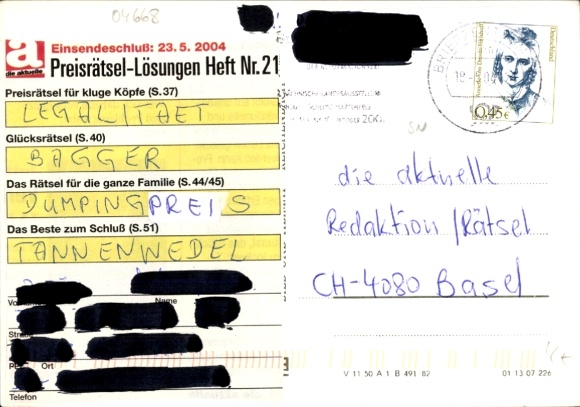 04668
a
die aktuelle
Einsendeschluß: 23.5.2004
Preisrätsel-Lösungen Heft Nr. 21
Preisrätsel für kluge Köpfe (S.37)
LEGALITAET
Glücksrätsel (S.40)
BAGGER
Das Rätsel für die ganze Familie (S.44/45)
DUMPINGPREIS
Das Beste zum Schluß (S.51)
TANNENWEDEL
Name
Ort
Telefon
Deutschland
0,45€
die aktuelle
Redaktion/Rätsel
CH-4080 Basel
V 11 50 A 1 B 491 82
01 13 07 226